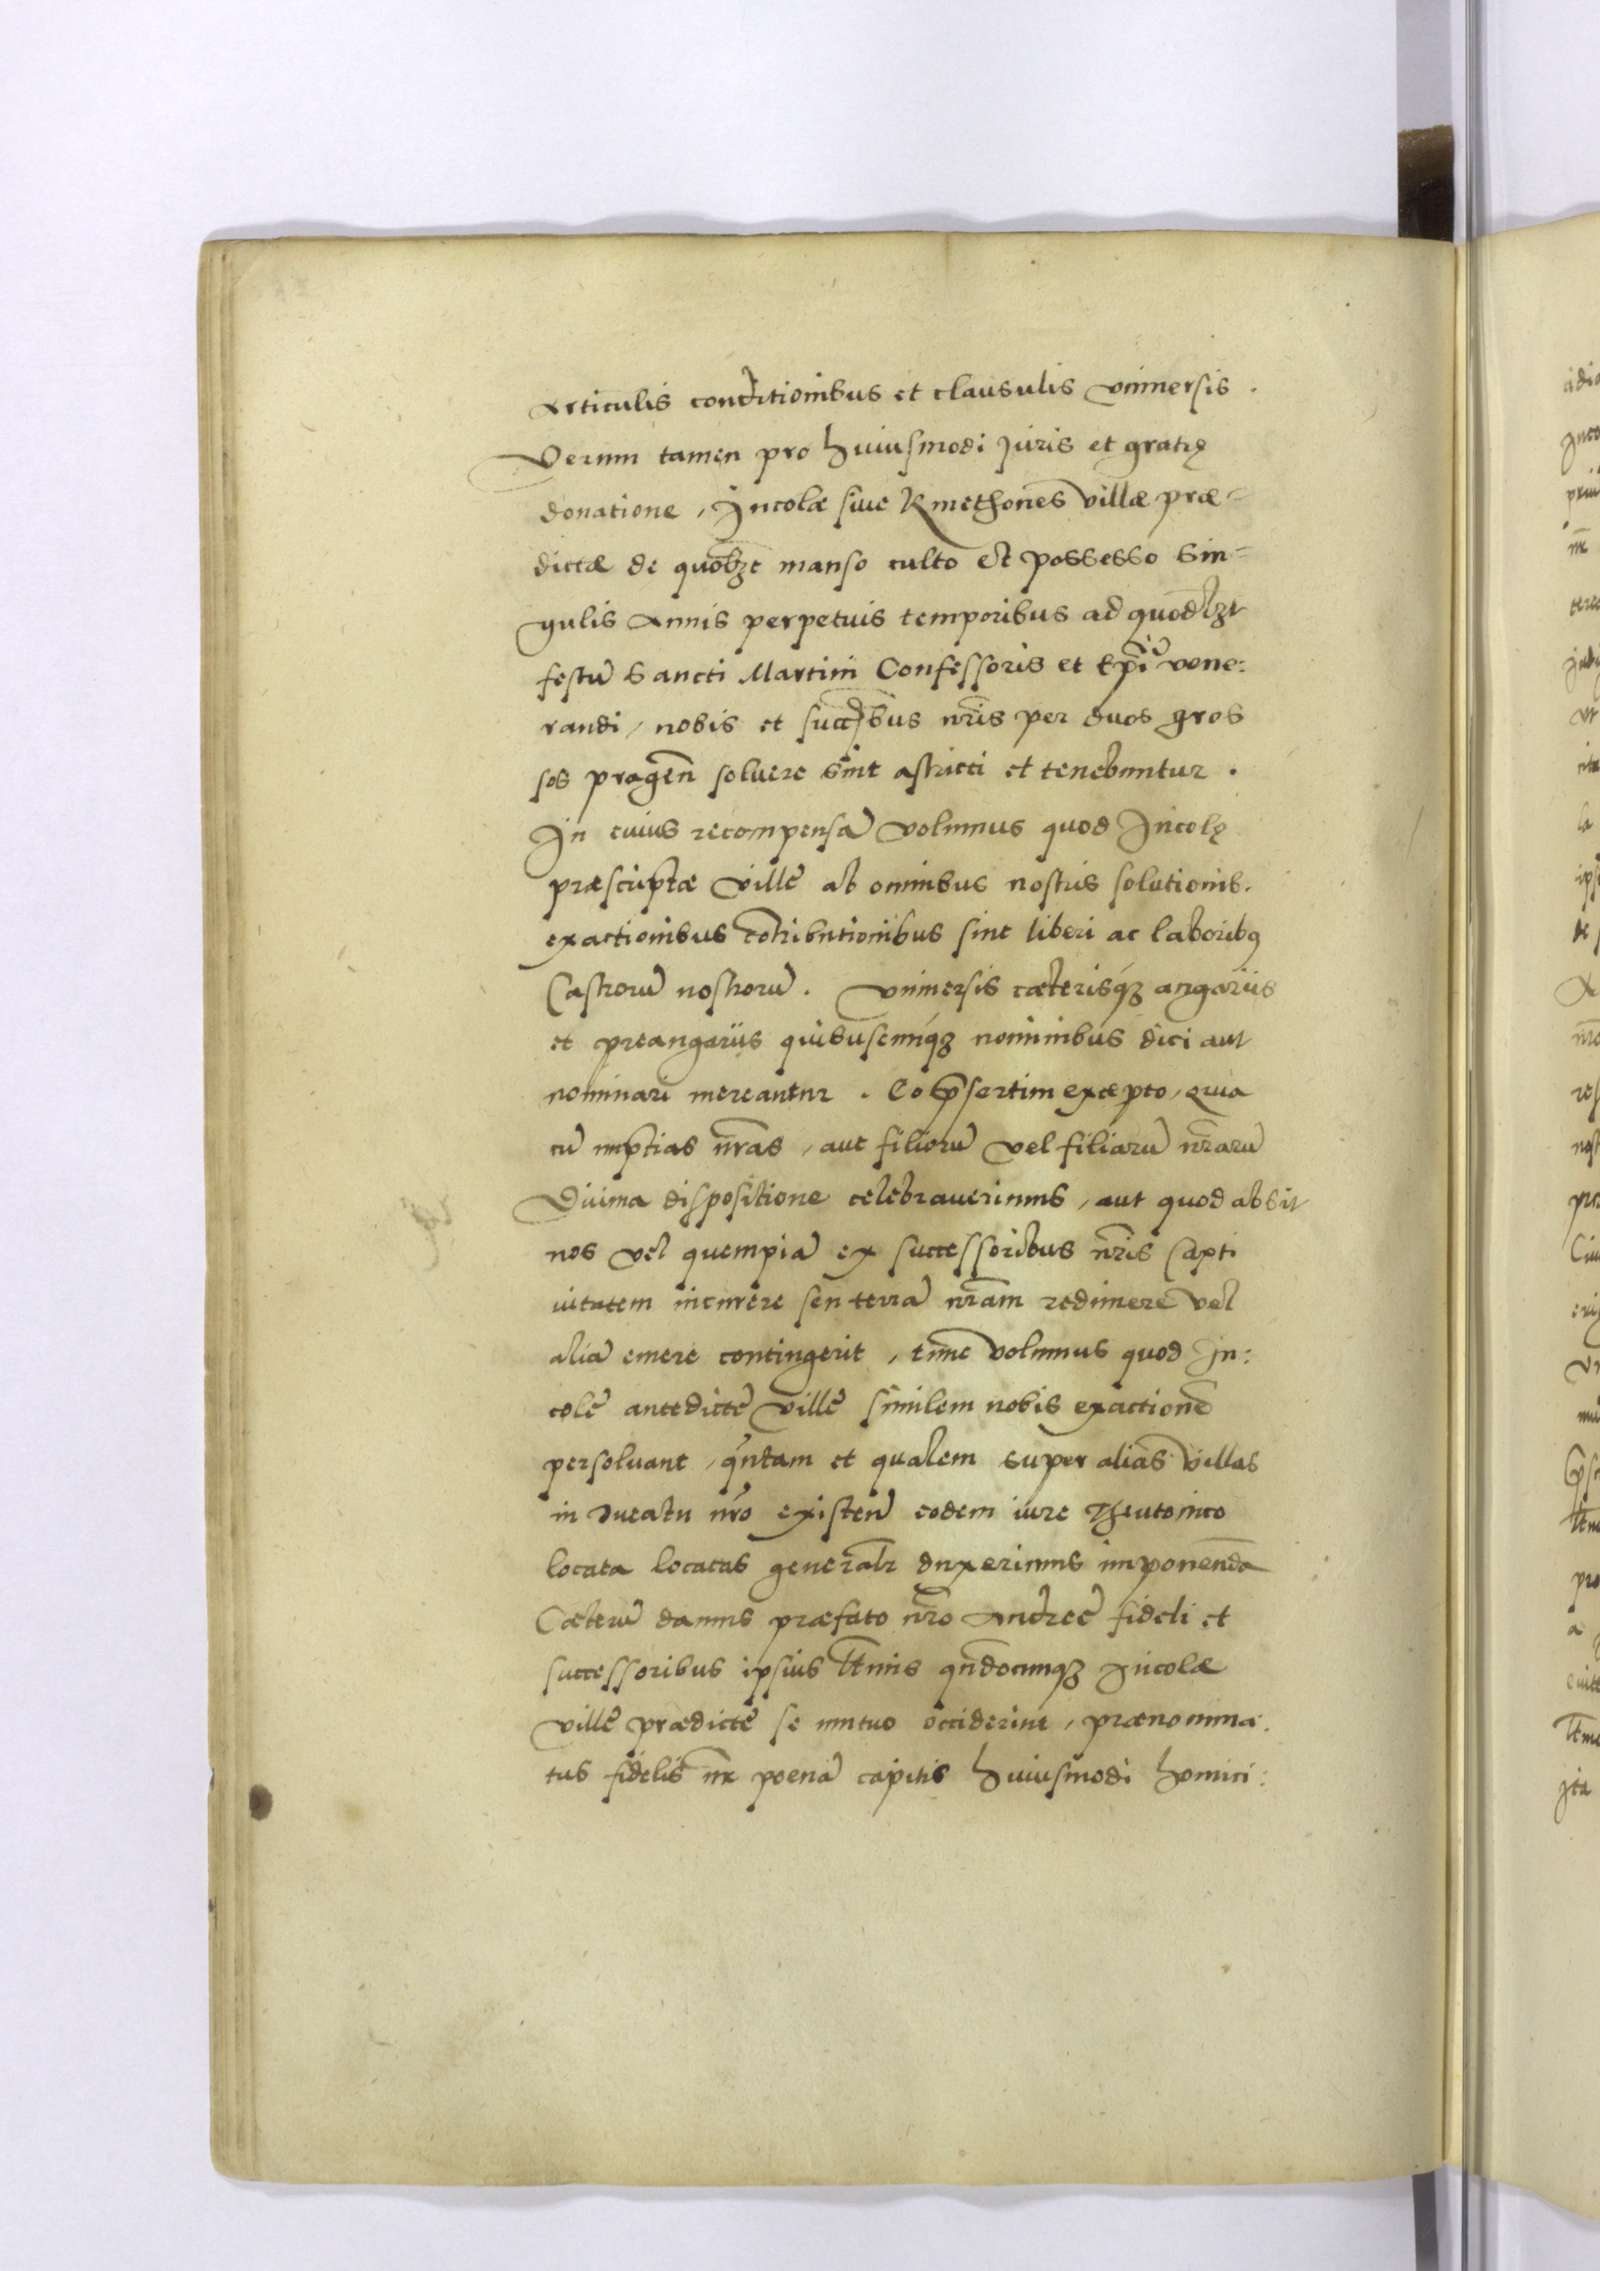 Articulis conditionibus et clausulis vniuersis.
Verum tamen pro huiusmodi Juris et gratię
donatione, Incolæ siue Kmethones villæ præ-
dictæ de quolꝫt manso culto et possesso sin-
gulis Annis perpetuis temporibus ad quodlꝫt
festū Sancti Martini Confessoris et Epī vene:
randi, nobis et succ̄sbus nr̄is per duos gros
sos pragen̄ soluere sint astricti et tenebuntur.
In cuius recompensā volumus quod Incolę
præscriptæ villę ab omnibus nostris solutionib.
exactionibus cōtributionibus sint liberi ac laboribꝰ
Castrorū nostrorū. Vniuersis cæterisqꝫ angariis
et preangariis quibuscunqꝫ nominibus dici aut
nominari mereantur. Eo p̄sertim excepto, qua
cū nuptias nr̄as, aut filiorū vel filiarū nr̄arū
Diuina dispositione celebrauerimus, aut quod absit
nos vel quempiā ex successoribus nr̄is Capti
uitatem incurere seu terrā nr̄am redimere vel
aliā emere contingerit, tunc volumus quod In:
colę antedictę villę similem nobis exactionē
persoluant, qn̄tam et qualem super alias villas
in Ducatu nr̄o existen̄ eodem iure Theutonico
locata locatas general̄r duxerimus imponenda
Cæterū damus præfato nr̄o Andreę fideli et
successoribus ipsius l̄t̄imis qn̄docunqꝫ Incolæ
villę prædictę se mutuo occiderint, prænomina.
tus fidelis nr̄ poenā capitis huiusmodi homici: